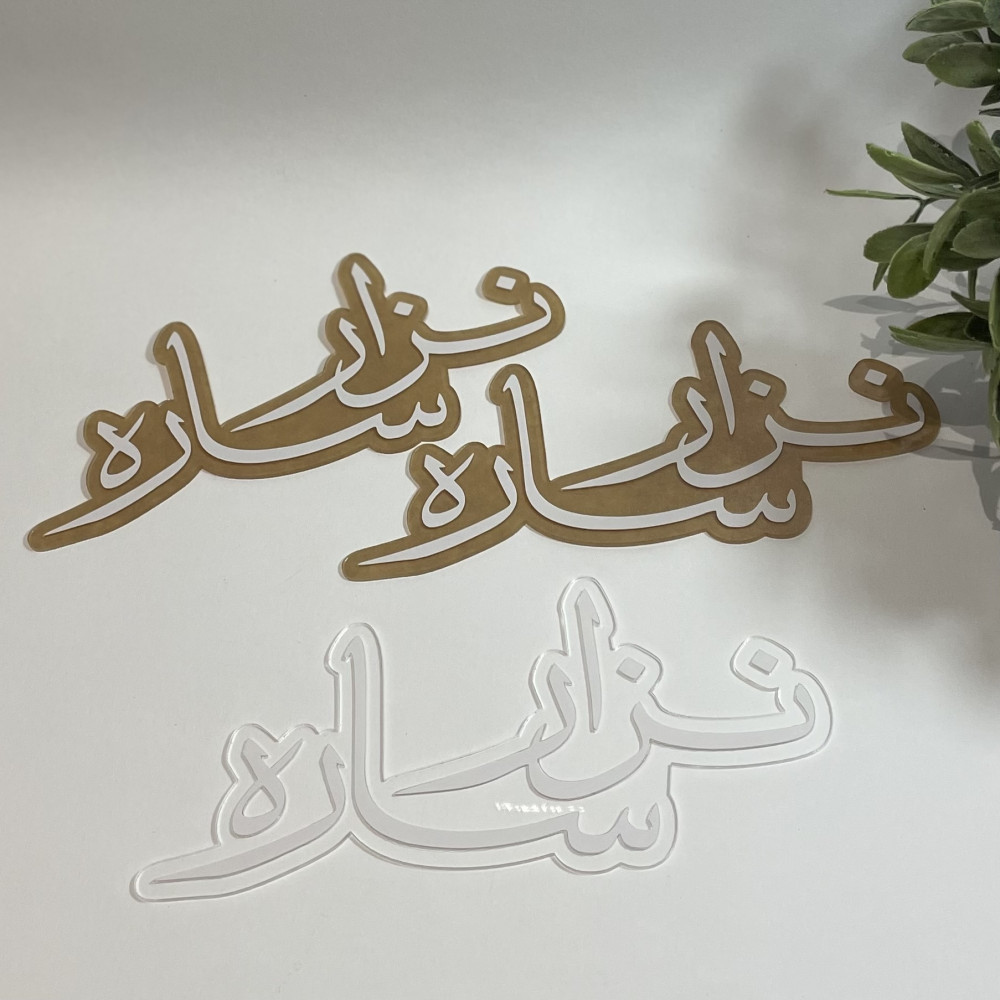 نزار
ساره
نزار
ساره
نزار
ساره